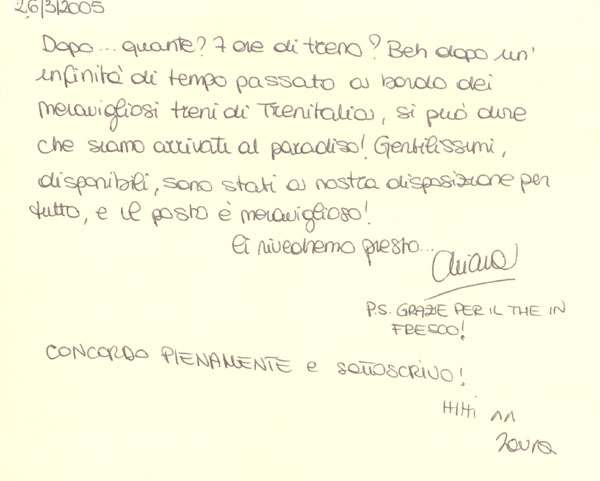 26/3/2005
Dopo... quante? 7 ore di treno? Beh dopo un'
infinità di tempo passato a bordo dei
meravigliosi treni di Trenitalia, si può dire
che siamo arrivati al paradiso! Gentilissimi,
disponibili, sono stati a nostra disposizione per
tutto, e il posto è meraviglioso!
Ci rivedremo presto...
Chiara
P.S. GRAZIE PER IL THE IN
FRESCO!
CONCORDO PIENAMENTE e SOTTOSCRIVO!
HiHi ^^
Laura